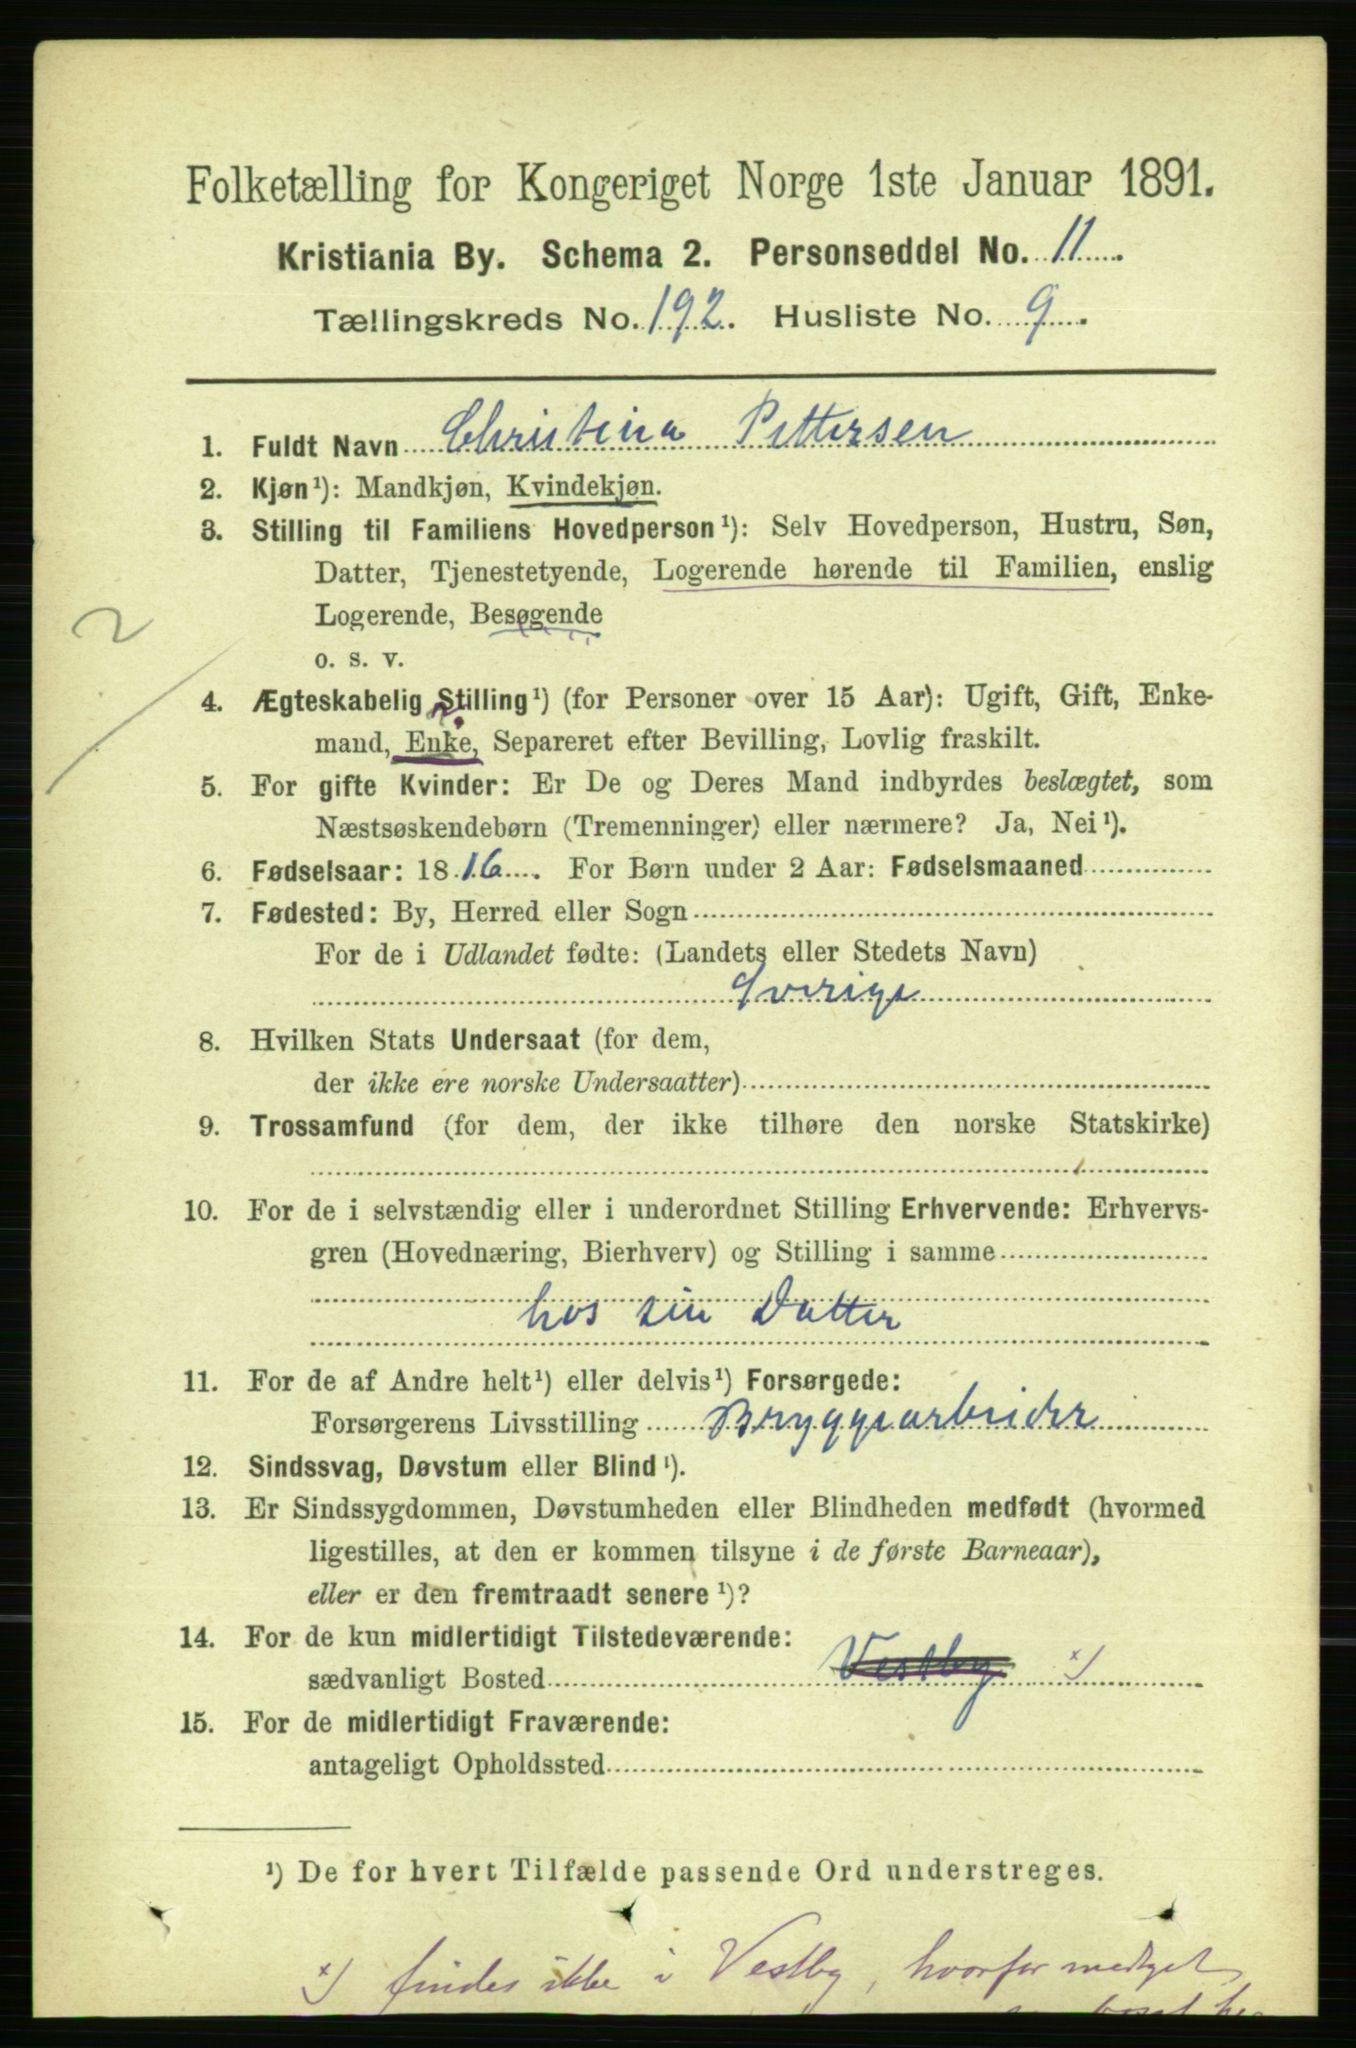 Folketælling for Kongeriget Norge 1ste Januar 1891.
Kristiania By. Schema 2. Personseddel No. 11
Tællingskreds No. 192. Husliste No. 9.
1. Fuldt Navn Christina Pettersen
2. Kjøn¹): Mandkjøn, Kvindekjøn.
3. Stilling til Familiens Hovedperson¹): Selv Hovedperson, Hustru, Søn,
Datter, Tjenestetyende, Logerende hørende til Familien, enslig
Logerende, Besøgende
o. s. v.
2
4. Ægteskabelig Stilling¹) (for Personer over 15 Aar): Ugift, Gift, Enke-
mand, Enke, Separeret efter Bevilling, Lovlig fraskilt.
5. For gifte Kvinder: Er De og Deres Mand indbyrdes beslægtet, som
Næstsøskendebørn (Tremenninger) eller nærmere? Ja, Nei¹).
6. Fødselsaar: 1816. For Børn under 2 Aar: Fødselsmaaned
7. Fødested: By, Herred eller Sogn
For de i Udlandet fødte: (Landets eller Stedets Navn)
Sverige
8. Hvilken Stats Undersaat (for dem,
der ikke ere norske Undersaatter)
9. Trossamfund (for dem, der ikke tilhøre den norske Statskirke)
10. For de i selvstændig eller i underordnet Stilling Erhvervende: Erhvervs-
gren (Hovednæring, Bierhverv) og Stilling i samme
hos sin Datter
11. For de af Andre helt¹) eller delvis¹) Forsørgede:
Forsørgerens Livsstilling Bryggearbeider
12. Sindssvag, Døvstum eller Blind¹).
13. Er Sindssygdommen, Døvstumheden eller Blindheden medfødt (hvormed
ligestilles, at den er kommen tilsyne i de første Barneaar),
eller er den fremtraadt senere¹)?
14. For de kun midlertidigt Tilstedeværende:
sædvanligt Bosted Vestby x)
15. For de midlertidigt Fraværende:
antageligt Opholdssted
¹) De for hvert Tilfælde passende Ord understreges.
x) findes ikke i Vestby, hvorfor medtget
bosat her